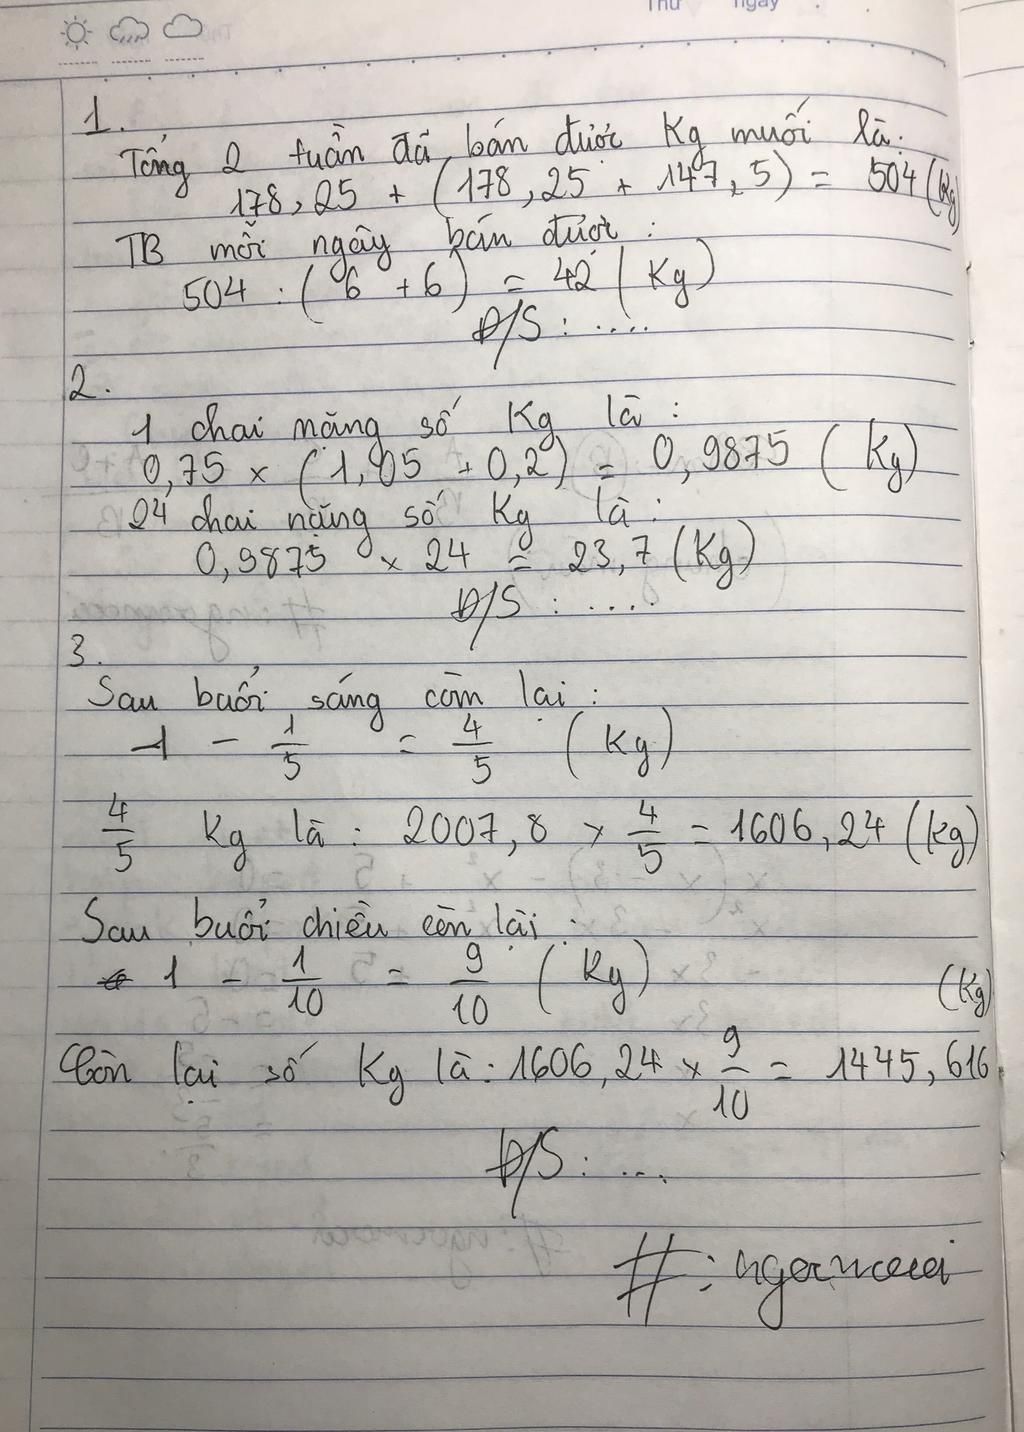 Thứ ngày
1.
Tổng 2 tuần đã bán được Kg muối là:
178,25 + (178,25 + 147,5) = 504 (Kg)
TB mỗi ngày bán được:
504 : (6 + 6) = 42 (Kg)
Đ/S: ....
2.
1 chai nặng số Kg là:
0,75 × (1,05 + 0,2) = 0,9875 (Kg)
24 chai nặng số Kg là:
0,9875 × 24 = 23,7 (Kg)
Đ/S: ....
3.
Sau buổi sáng còn lại:
1 - 1/5 = 4/5 (Kg)
4/5 Kg là: 2007,8 × 4/5 = 1606,24 (Kg)
Sau buổi chiều còn lại:
1 - 1/10 = 9/10 (Kg)
Còn lại số Kg là: 1606,24 × 9/10 = 1445,616 (Kg)
Đ/S: ...